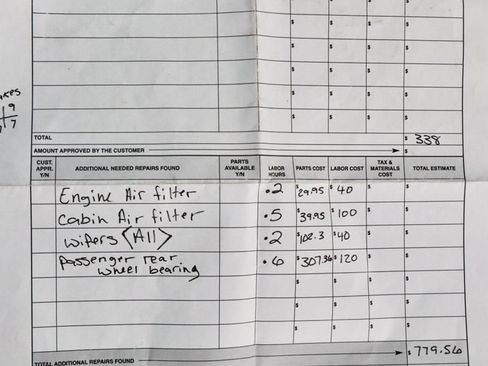 9
7
TOTAL $ 338
AMOUNT APPROVED BY THE CUSTOMER $
CUST. APPR. Y/N ADDITIONAL NEEDED REPAIRS FOUND PARTS AVAILABLE Y/N LABOR HOURS PARTS COST LABOR COST TAX & MATERIALS COST TOTAL ESTIMATE
Engine Air filter .2 $29.95 $40
Cabin Air filter .5 $39.95 $100
wipers <All> .2 $102.3 $40
passenger rear
wheel bearing .6 $307.36 $120
TOTAL ADDITIONAL REPAIRS FOUND $779.56